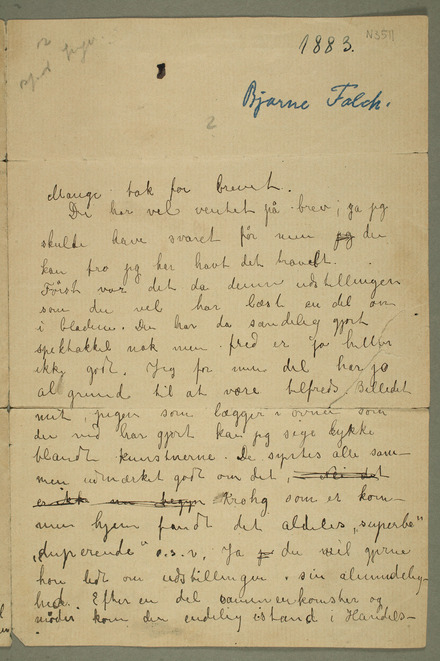 1883.
N3511
Bjarne Falck.
2
Mange tak for brevet.
Du har vel ventet på brev; ja jeg
skulde have svaret før men jeg du
kan tro jeg har havt det travelt.
Først var det da denne udstillingen
som du vel har læst en del om
i bladene. Den har da sandelig gjort
spektakkel nok men fred er jo heller
ikke godt. Jeg for min del har jo
al grund til at være tilfreds. Billedet
mit, pigen som lægger i ovnen som
du ved har gjort kan jeg sige lykke
blandt kunstnerne. De syntes alle sam-
men udmærket godt om det,
Krohg som er kom-
men hjem fandt det aldeles „superbe"
„duperende" o.s.v. Ja du vil gjerne
høre lidt om udstillingen i sin almindelig-
hed. Efter en del sammenkomster og
møder kom den endelig istand i Handels-